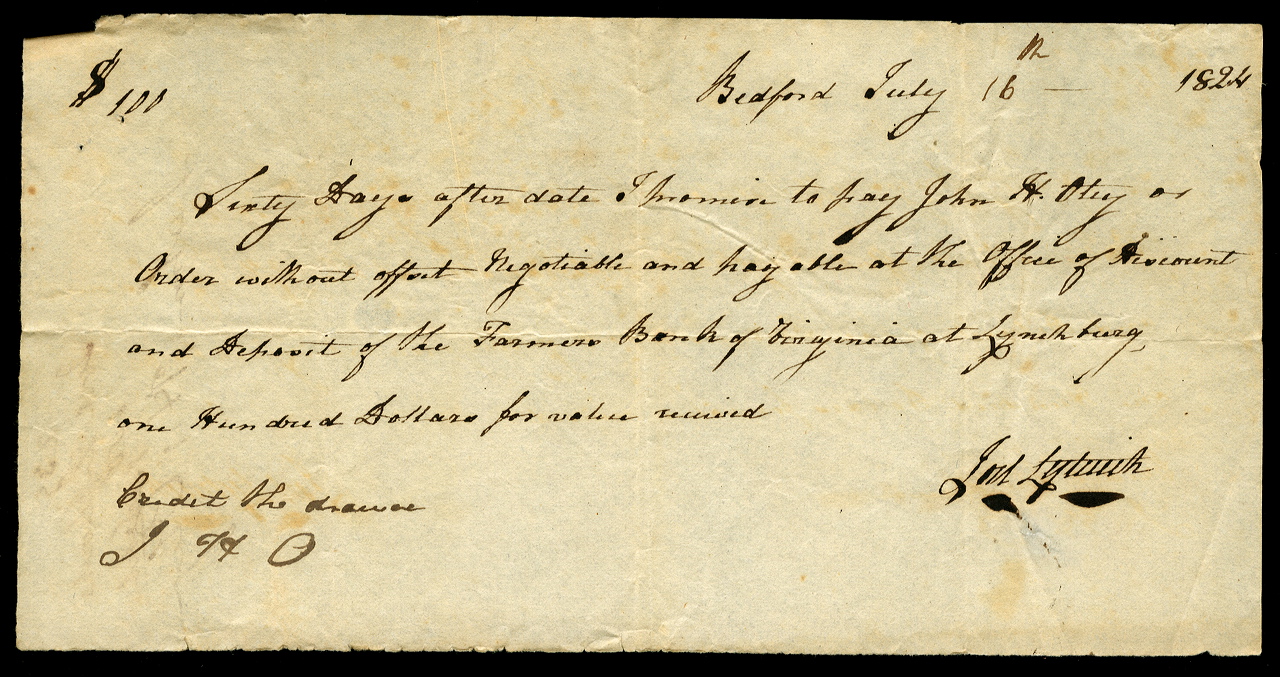 $100 Bedford July 16th — 1824
Sixty Days after date I promise to pay John H. Otey or
Order without offset Negotiable and payable at the Office of Discount
and Deposit of the Farmers Bank of Virginia at Lynchburg,
one Hundred Dollars for value received
Joel
Credit the drawer
J H O